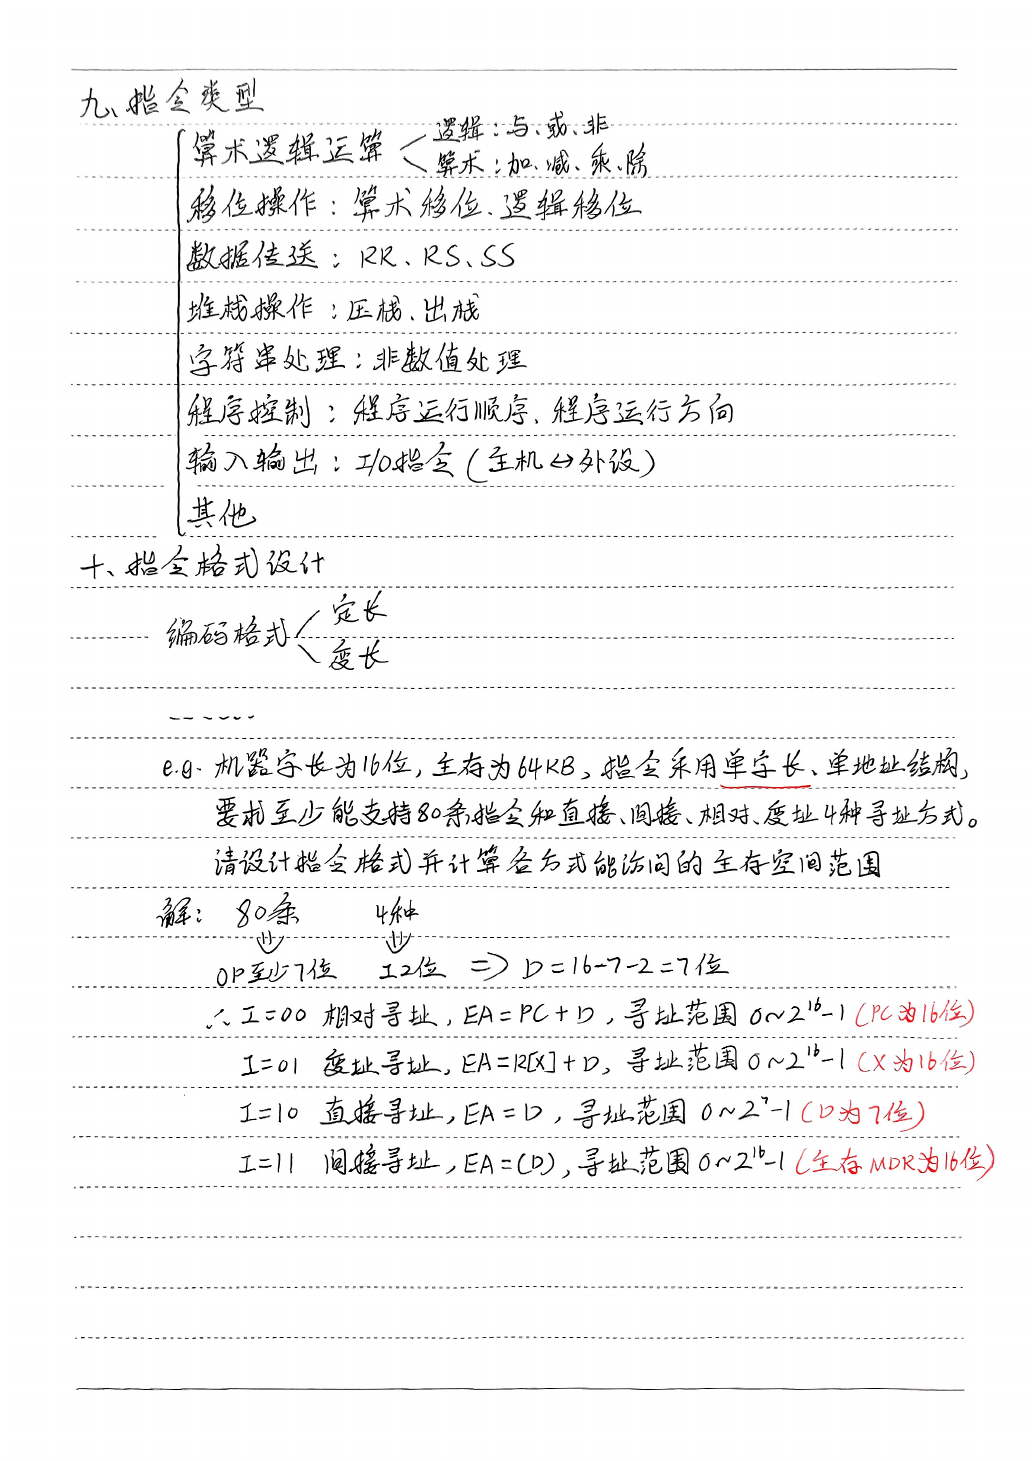 九、指令类型
算术逻辑运算
逻辑：与、或、非
算术：加、减、乘、除
移位操作：算术移位、逻辑移位
数据传送：RR、RS、SS
堆栈操作：压栈、出栈
字符串处理：非数值处理
程序控制：程序运行顺序、程序运行方向
输入输出：I/O指令(主机↔外设)
其他
十、指令格式设计
编码格式
定长
变长
e.g. 机器字长为16位，主存为64KB，指令采用单字长、单地址结构，
要求至少能支持80条指令和直接、间接、相对、变址4种寻址方式。
请设计指令格式并计算各方式能访问的主存空间范围
解： 80条 4种
OP至少7位 I2位 => D=16-7-2=7位
∴ I=00 相对寻址，EA=PC+D，寻址范围0~2¹⁶-1 (PC为16位)
I=01 变址寻址，EA=R[X]+D，寻址范围0~2¹⁶-1 (X为16位)
I=10 直接寻址，EA=D，寻址范围0~2⁷-1 (D为7位)
I=11 间接寻址，EA=(D)，寻址范围0~2¹⁶-1 (主存MDR为16位)